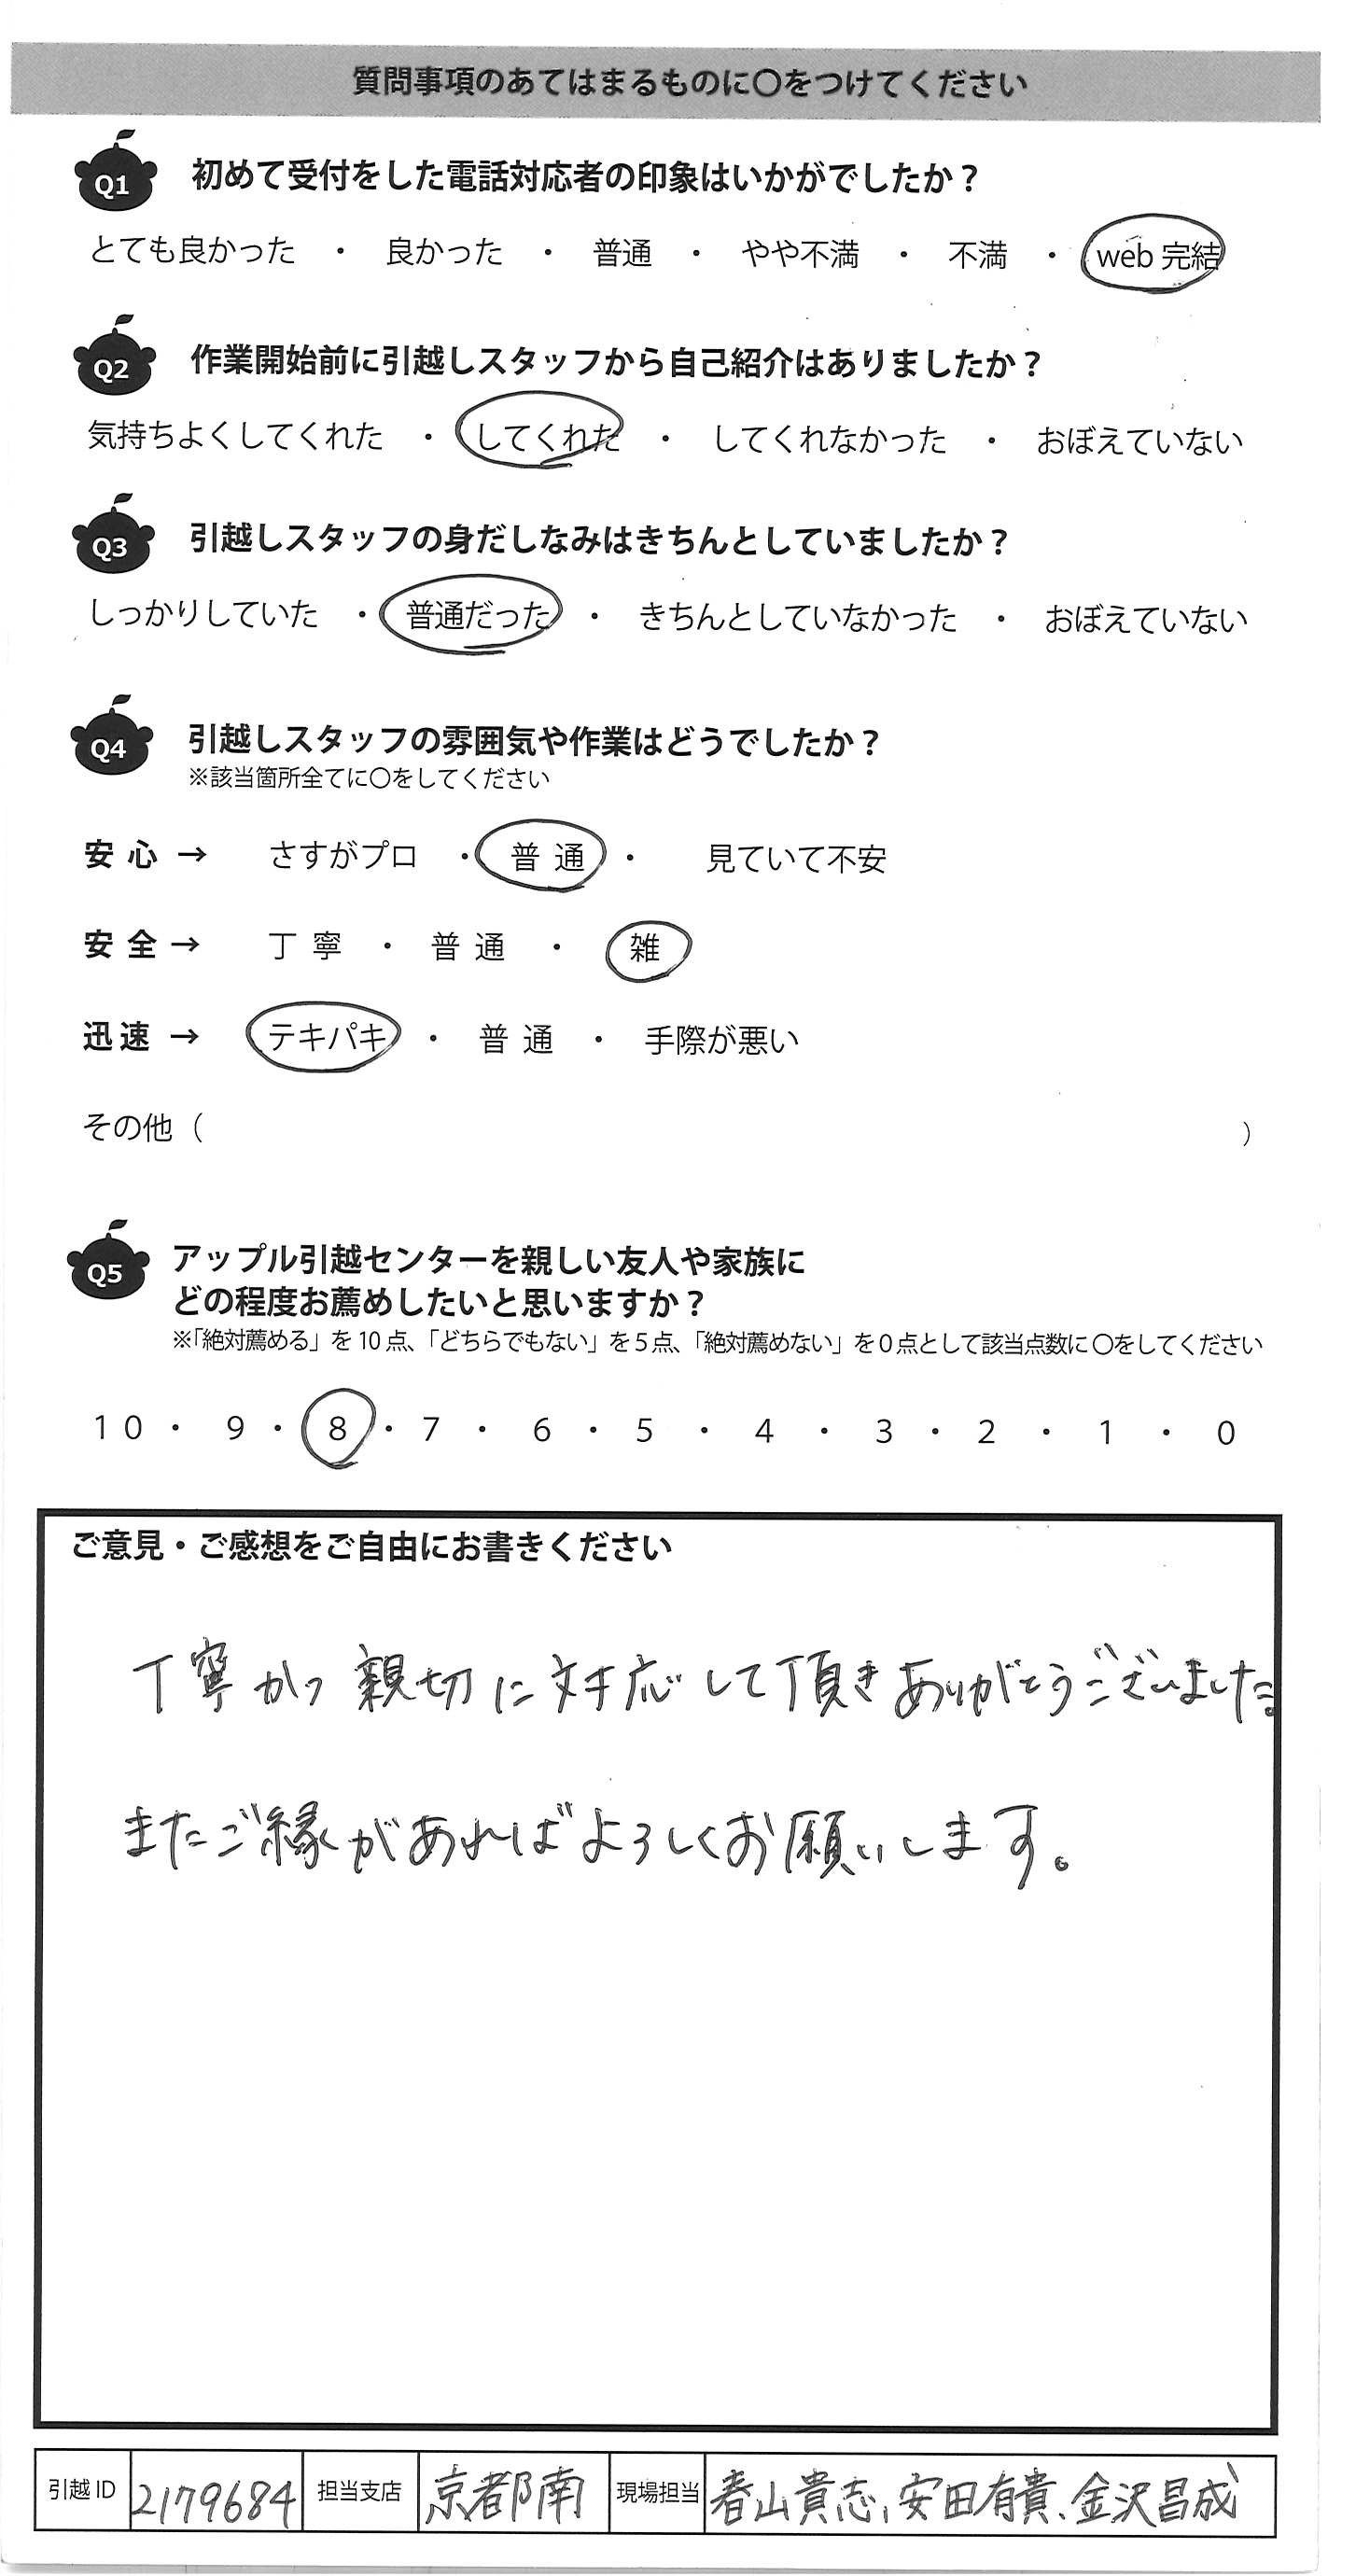 質問事項のあてはまるものに〇をつけてください
Q1 初めて受付をした電話対応者の印象はいかがでしたか？
とても良かった ・ 良かった ・ 普通 ・ やや不満 ・ 不満 ・ web 完結
Q2 作業開始前に引越しスタッフから自己紹介はありましたか？
気持ちよくしてくれた ・ してくれた ・ してくれなかった ・ おぼえていない
Q3 引越しスタッフの身だしなみはきちんとしていましたか？
しっかりしていた ・ 普通だった ・ きちんとしていなかった ・ おぼえていない
Q4 引越しスタッフの雰囲気や作業はどうでしたか？
※該当箇所全てに〇をしてください
安心 → さすがプロ ・ 普通 ・ 見ていて不安
安全 → 丁寧 ・ 普通 ・ 雑
迅速 → テキパキ ・ 普通 ・ 手際が悪い
その他（ ）
Q5 アップル引越センターを親しい友人や家族に
どの程度お薦めしたいと思いますか？
※「絶対薦める」を10点、「どちらでもない」を5点、「絶対薦めない」を0点として該当点数に〇をしてください
10 ・ 9 ・ 8 ・ 7 ・ 6 ・ 5 ・ 4 ・ 3 ・ 2 ・ 1 ・ 0
ご意見・ご感想をご自由にお書きください
丁寧かつ親切に対応して頂きありがとうございました。
またご縁があればよろしくお願いします。
引越ID 2179684 担当支店 京都南 現場担当 春山貴志、安田有貴、金沢昌成